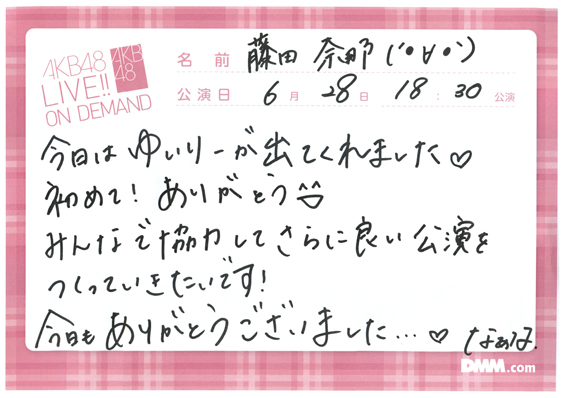 AKB48
LIVE!!
ON DEMAND
AKB
48
名前 藤田 奈那 (´•∀•`)
公演日 6月 28日 18:30 公演
今日は ゆいりーが 出てくれました♡
初めて! ありがとう
みんなで協力して さらに良い 公演を
つくっていきたいです!
今日も ありがとうございました…♡ なぁな.
DMM.com